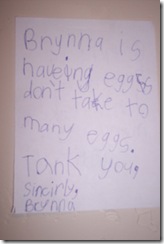 Brynna is
haveing eggs
don't take to
many eggs.
Tank you,
Sincirly,
Brynna